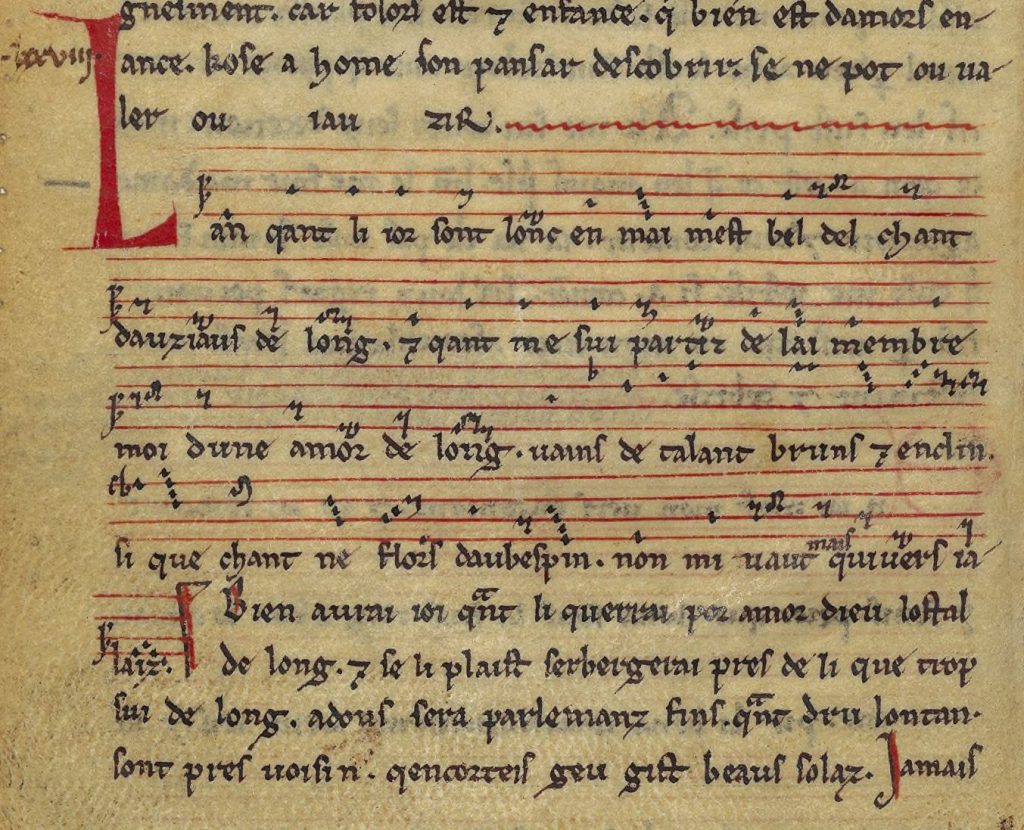 gnelment. car folors est ⁊ enfance. q̄ bien est damors en-
ance. kose a home son pansar descobrir. se ne pot ou ua-
.lxxviij.
ler ou iau ziR.
Lan qant li ior sont lonc en mai mest bel del chant
dauziaus de long. ⁊ qant me sui partiz de lai membre
moi dune amor de long. uains de talant bruns ⁊ enclin.
si que chant ne flors daubespin. non mi uaut mais quiuers ia-
laiz. Bien aurai ioi qāt li querrai por amor dieu lostal
de long. ⁊ se li plaist serbergerai pres de li que trop
sui de long. adous sera parlemanz fins. qāt dru lontan-
sont pres uoisin. qencorteis geu gist beaus solaz. Jamais